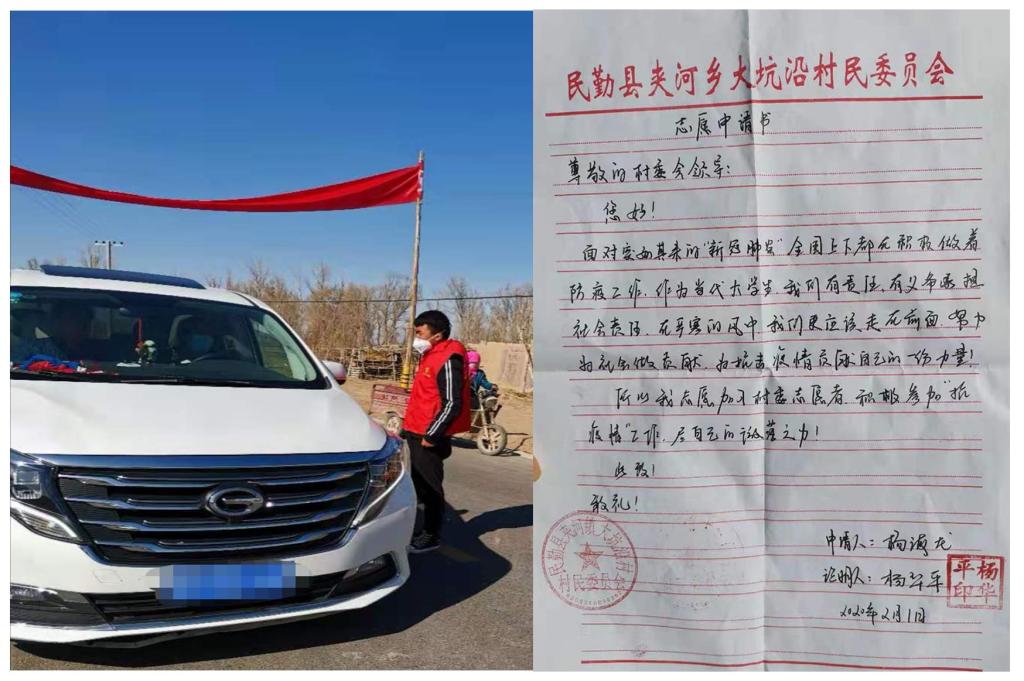 民勤县夹河乡大坑沿村民委员会
志愿申请书
尊敬的村委会领导：
您好！
面对突如其来的"新冠肺炎"全国上下都在积极做着
防疫工作，作为当代大学生，我们有责任，有义务承担
社会责任，在严寒的风中我们更应该走在前面，努力
为社会做贡献，为抗击疫情贡献自己的一份力量！
所以我志愿加入村委志愿者，积极参加"抗
疫情"工作，尽自己的微薄之力！
此致！
敬礼！
申请人：杨海龙
证明人：杨华平
2020年2月1日
民勤县夹河镇大坑沿村
村民委员会
杨华
平印